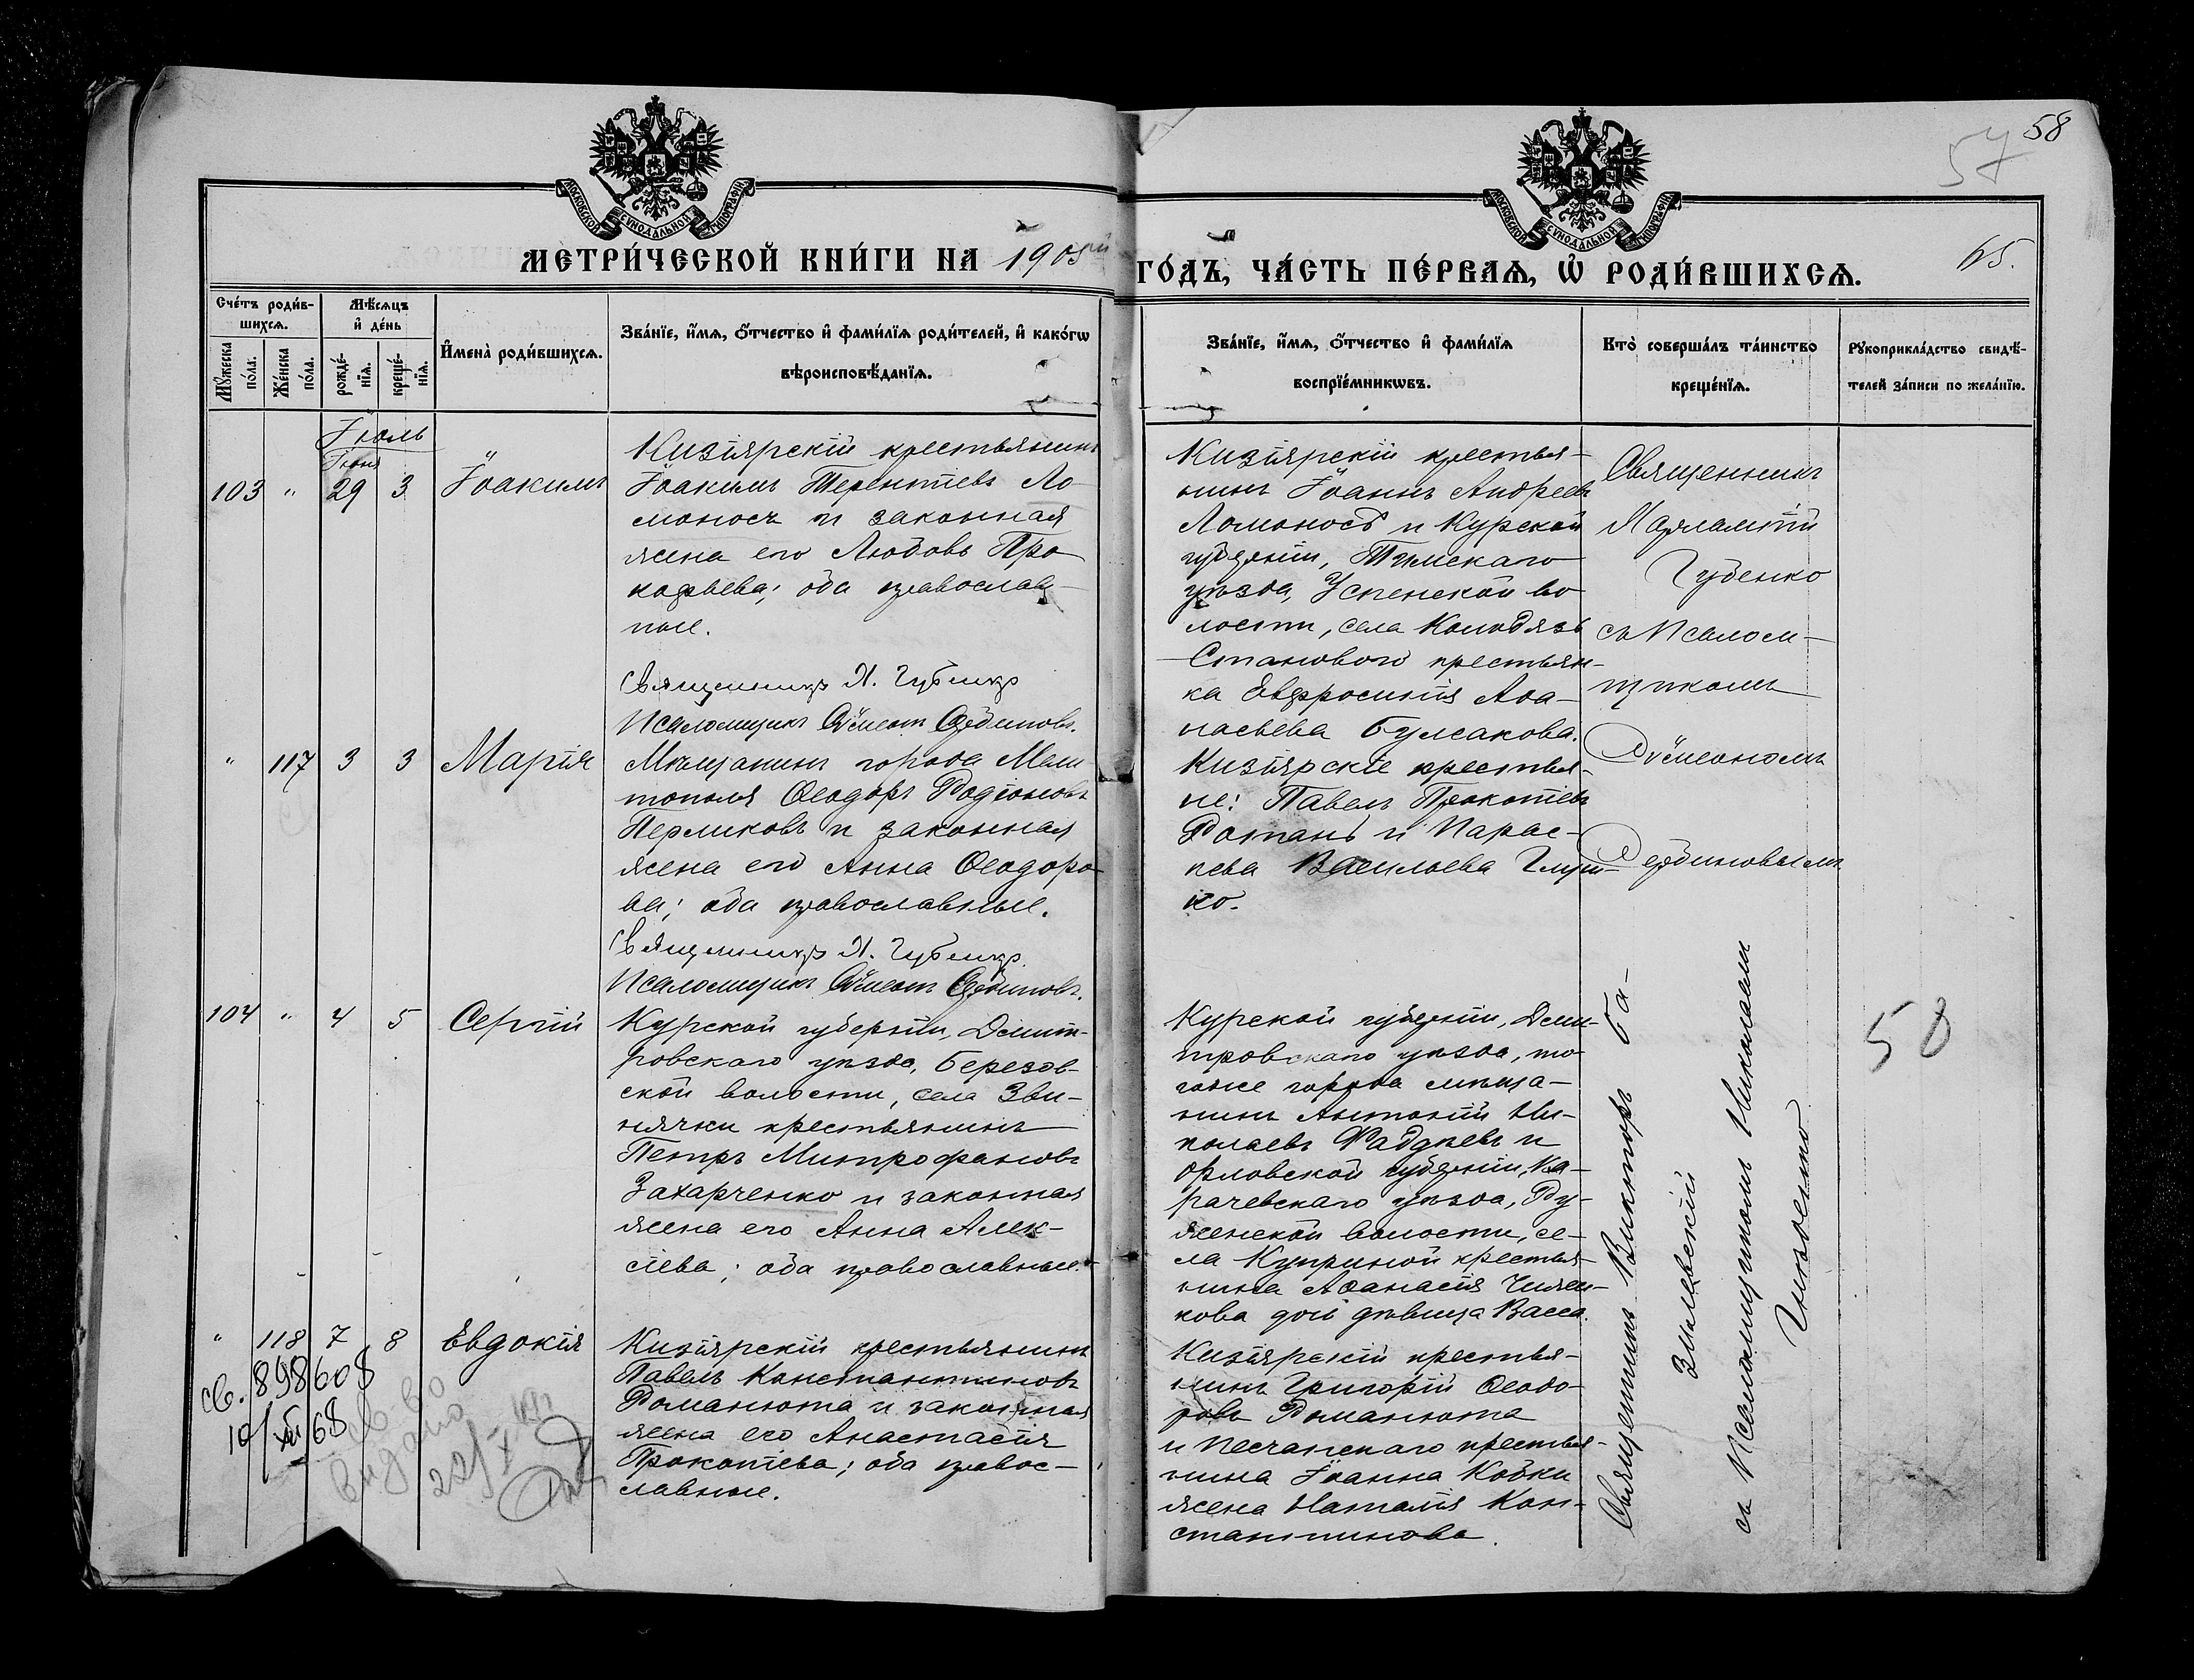 58
57
МОСКОВСКОЙ СѴНОДАЛЬНОЙ ТИПОГРАФІИ
МОСКОВСКОЙ СѴНОДАЛЬНОЙ ТИПОГРАФІИ
МЕТРИ́ЧЕСКОЙ КНИ́ГИ НА 1905ый
ГО́ДЪ, ЧА́СТЬ ПЕ́РВАѦ, Ѡ҆ РОДИ́ВШИХСѦ.
65.
Сче́тъ роди́в-
шихсѧ.
Мꙋ́жеска по́ла.
Же́нска по́ла.
Мѣ́сѧцъ
и҆ де́нь
рожде́-
нїѧ.
креще́-
нїѧ.
И҆мена̀ роди́вшихсѧ.
Зва́нїе, и҆́мѧ, ѻ҆́тчество и҆ фами́лїѧ роди́телей, и҆ како́гѡ
вѣроисповѣ́данїѧ.
Зва́нїе, и҆́мѧ, ѻ҆́тчество и҆ фами́лїѧ
воспрїе́мникѡвъ.
Кто̀ соверша́лъ та́инство
креще́нїѧ.
Рꙋкоприкла́дство свидѣ́-
телей за́писи по жела́нїю.
Іюль
Іюня
103 " 29 3 Іоакимъ
Кизіярскій крестьянинъ
Іоакимъ Терентіевъ Ло-
моносъ и законная
жена его Любовь Про-
кофьева; оба православ-
ные.
Священникъ Х. Губенко
Псаломщикъ Сѵмеонъ Сербиновъ.
Кизіярскій крестья-
нинъ Іоаннъ Андреевъ
Ломоносъ и Курской
губерніи, Тимскаго
уѣзда, Успенской во-
лости, села Колодязь
Становаго крестьян-
ка Евфросинія Аѳа-
насьева Булгакова.
Священникъ
Харлампій
Губенко
съ Псалом-
щикомъ
Сѵмеономъ
Сербиновымъ
" 117 3 3 Марія
Мѣщанинъ города Мели-
тополя Ѳеодоръ Родіоновъ
Перликовъ и законная
жена его Анна Ѳеодоро-
ва; оба православные.
Священникъ Х. Губенко
Псаломщикъ Сѵмеонъ Сербиновъ.
Кизіярскіе крестья-
не: Павелъ Прокопіевъ
Ротань и Парас-
кева Васильева Глуш-
ко.
104 " 4 5 Сергій
Курской губерніи, Дмит-
ровскаго уѣзда, Березов-
ской волости, села Зви-
нячки крестьянинъ
Петръ Митрофановъ
Захарченко и законная
жена его Анна Алек-
сіева; оба православные.
Курской губерніи, Дми-
тровскаго уѣзда, то-
гоже города мѣща-
нинъ Антоній Ни-
колаевъ Фадѣевъ и
Орловской губерніи, Ка-
рачевскаго уѣзда, Ру-
женской волости, се-
ла Куприной крестья-
нина Аѳанасія Чижи-
кова дочь дѣвица Васса.
Священникъ Викторъ Ба-
Змаевскій
съ Псаломщикомъ Николаемъ
58
" 118 7 8 Евдокія
Кизіярскій крестьянинъ
Павелъ Константиновъ
Романюта и законная
жена его Анастасія
Прокопіева; оба правос-
лавные.
Кизіярскій крестья-
нинъ Григорій Ѳеодо-
ровъ Романюта
и Песчанскаго крестья-
нина Іоанна Кобки
жена Наталія Кон-
стантинова.
св. 898608
10/XII 68
св-во
видано
22/X